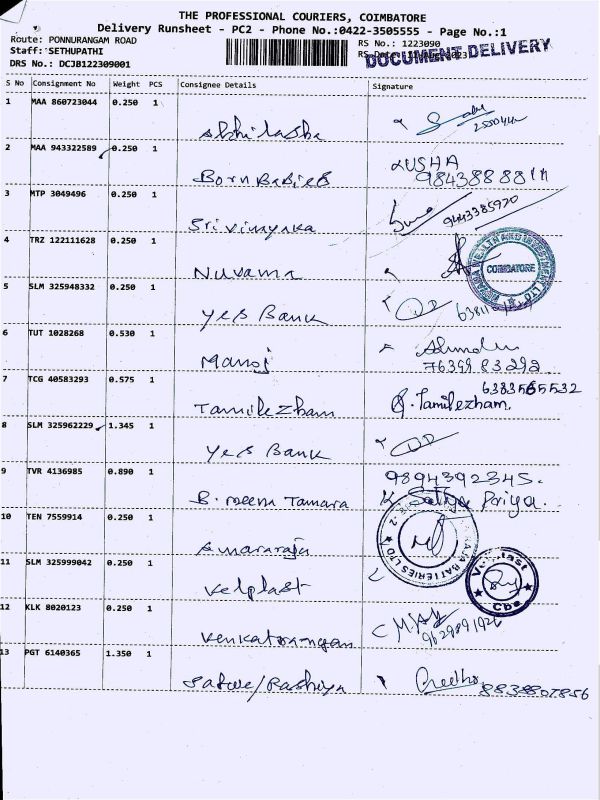 THE PROFESSIONAL COURIERS, COIMBATORE
Delivery Runsheet - PC2 - Phone No.:0422-3505555 - Page No.:1
Route: PONNURANGAM ROAD
Staff: SETHUPATHI
DRS No.: DCJB122309001
RS No.: 1223090
DOCUMENT DELIVERY
S No Consignment No Weight PCS Consignee Details Signature
1 MAA 860723044 0.250 1 Abhilasha
2 MAA 943322589 0.250 1 BornBabies USHA
3 MTP 3049496 0.250 1 Srivinayaka 9443385920
4 TRZ 122111628 0.250 1 Nuvama COIMBATORE
5 SLM 325948332 0.250 1 Yes Bank
6 TUT 1028268 0.530 1 Manoj 76399 83292
7 TCG 40583293 0.575 1 Tamilezham 6383565532
Tamilezham.
8 SLM 325962229 1.345 1 Yes Bank
9 TVR 4136985 0.890 1 B. Meena Tamara 9894392345.
K Sathya Priya.
10 TEN 7559914 0.250 1 Amararaja BATTERIES LTD
11 SLM 325999042 0.250 1 Velplast Velplast Cbe
12 KLK 8020123 0.250 1 Venkatrangan
13 PGT 6140365 1.350 1 Preetha 8838807856